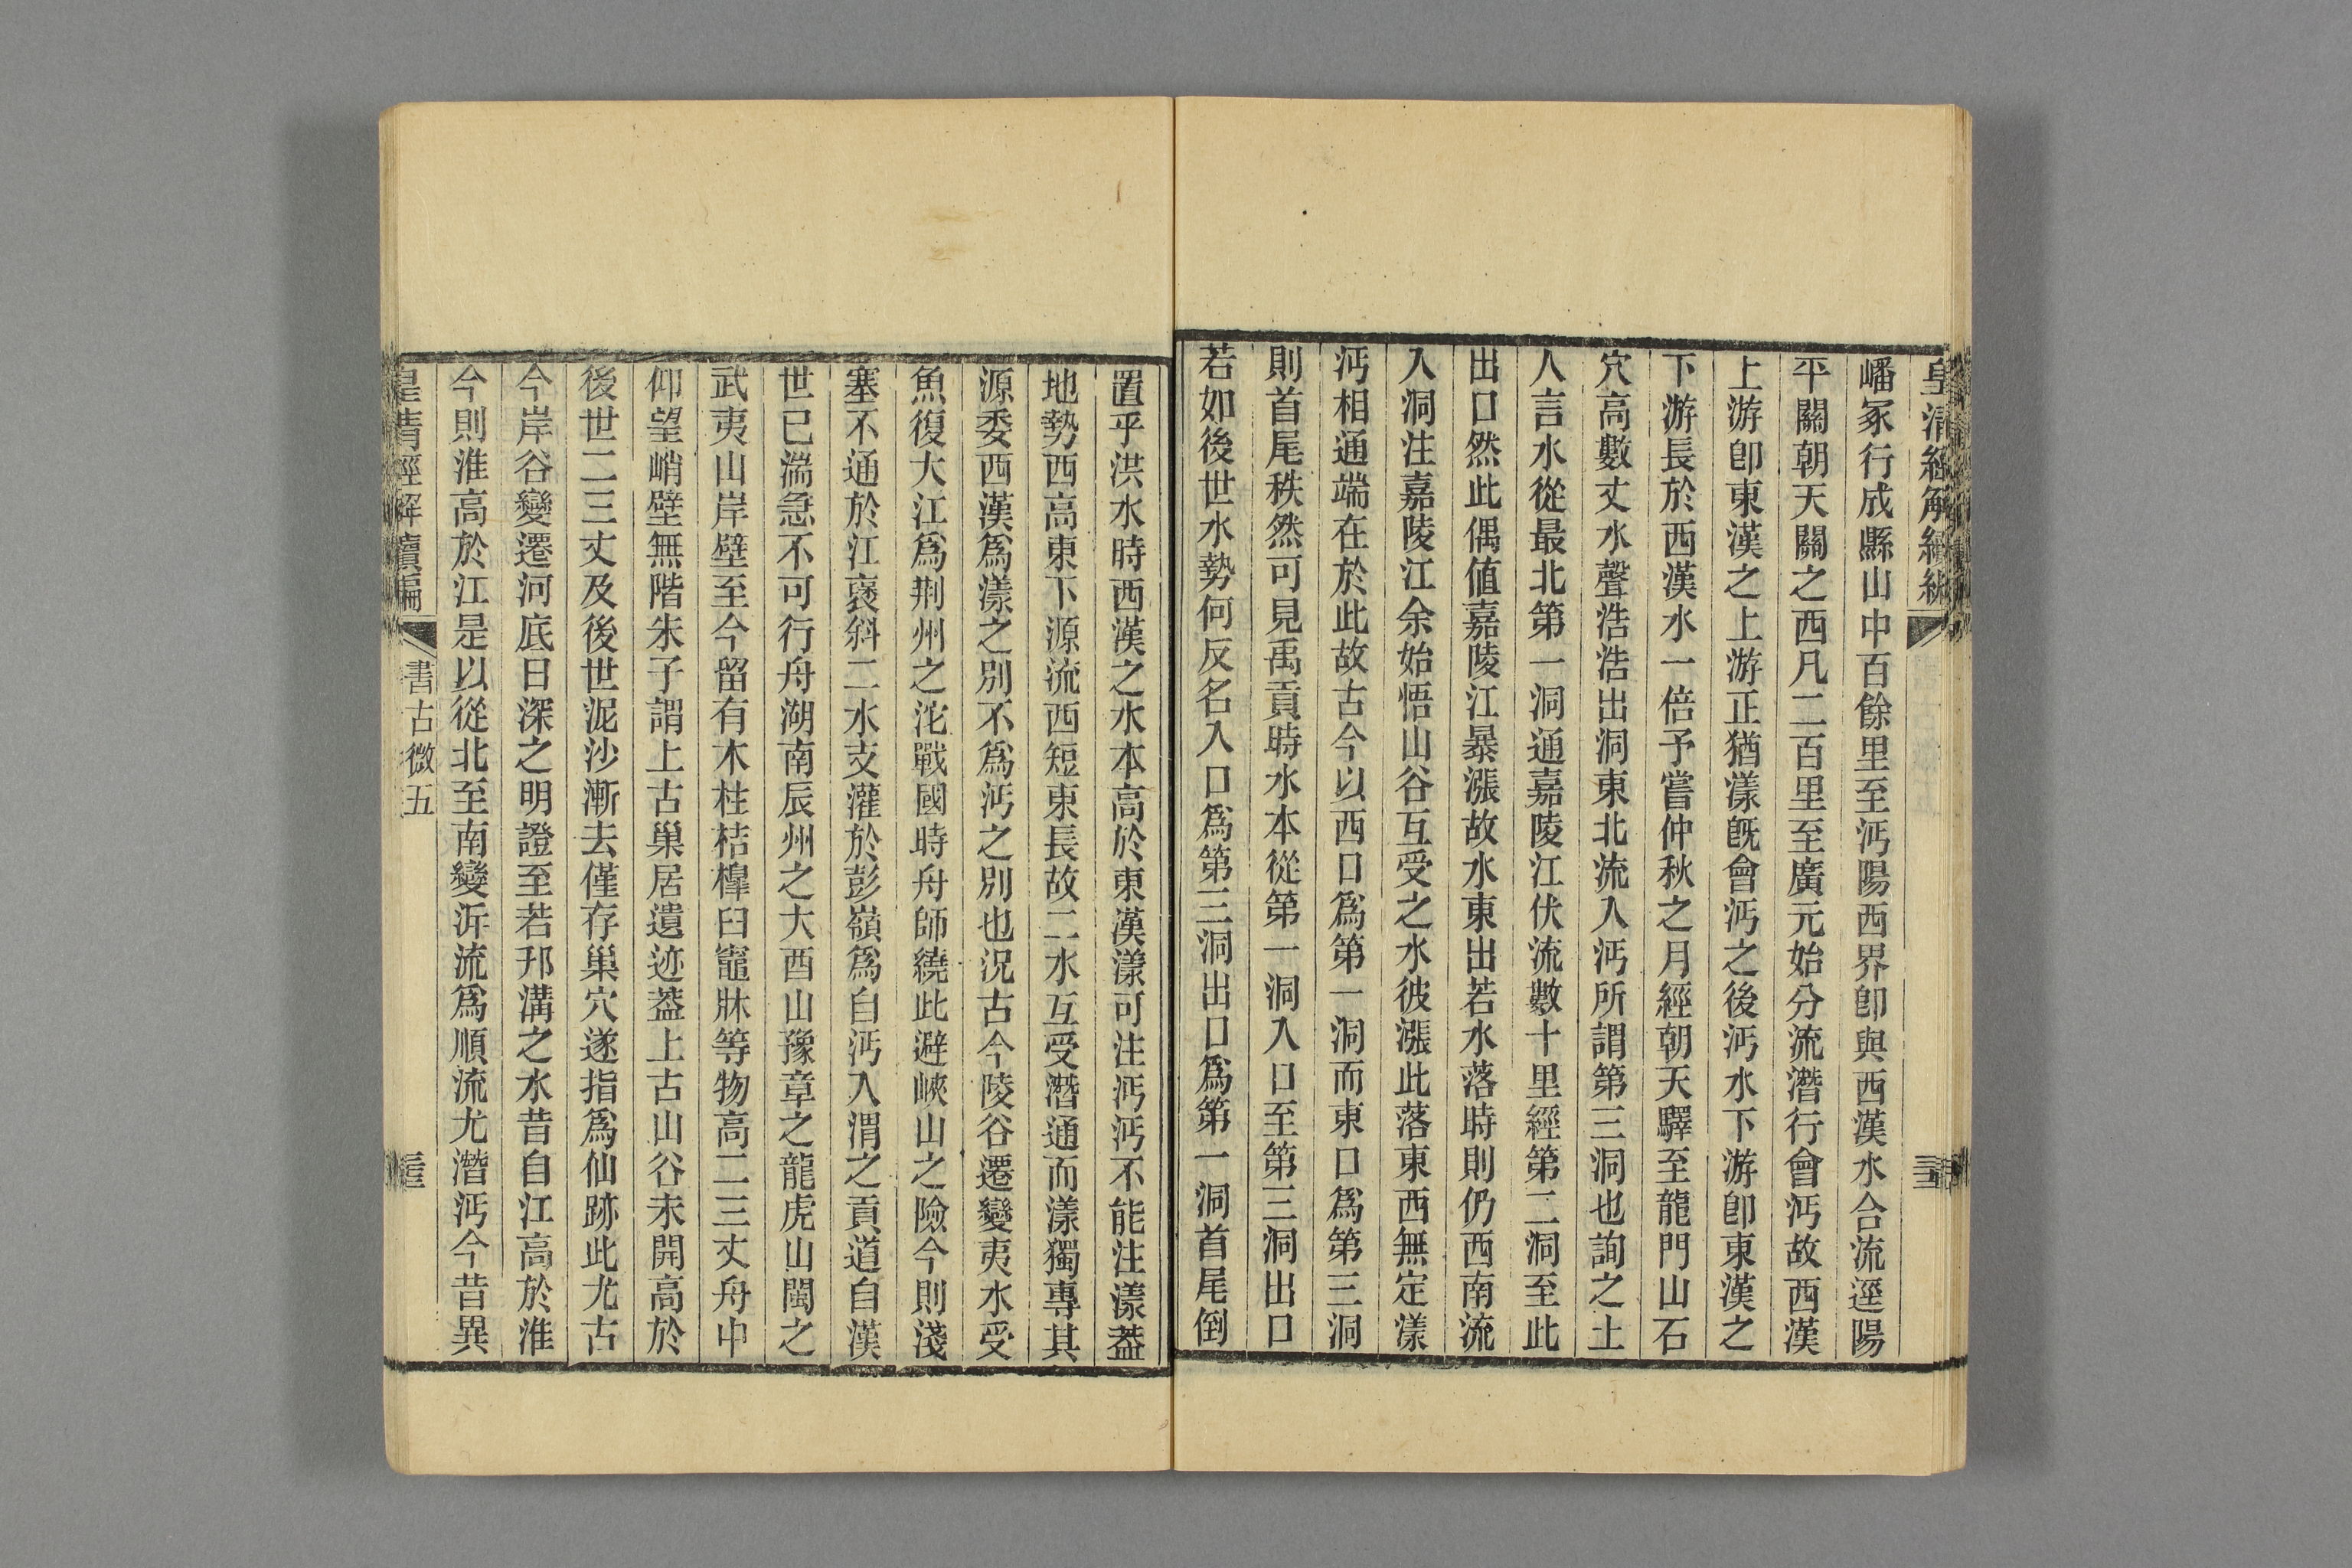 皇清經解續編
嶓冢行成縣山中百餘里至沔陽西界卽與西漢水合流逕陽
平關朝天關之西凡二百里至廣元始分流潛行會沔故西漢
上游卽東漢之上游正猶漾旣會沔之後沔水下游卽東漢之
下游長於西漢水一倍予嘗仲秋之月經朝天驛至龍門山石
穴高數丈水聲浩浩出洞東北流入沔所謂第三洞也詢之土
人言水從最北第一洞通嘉陵江伏流數十里經第二洞至此
出口然此偶值嘉陵江暴漲故水東出若水落時則仍西南流
入洞注嘉陵江余始悟山谷互受之水彼漲此落東西無定漾
沔相通端在於此故古今以西口爲第一洞而東口爲第三洞
則首尾秩然可見禹貢時水本從第一洞入口至第三洞出口
若如後世水勢何反名入口爲第三洞出口爲第一洞首尾倒
置乎洪水時西漢之水本高於東漢漾可注沔沔不能注漾葢
地勢西高東下源流西短東長故二水互受潛通而漾獨專其
源委西漢爲漾之別不爲沔之別也況古今陵谷遷變夷水受
魚復大江爲荆州之沱戰國時舟師繞此避峽山之險今則淺
塞不通於江褒斜二水支灌於彭嶺爲自沔入渭之貢道自漢
世已湍急不可行舟湖南辰州之大酉山豫章之龍虎山閩之
武夷山岸壁至今留有木柱桔橰臼竈牀等物高二三丈舟中
仰望峭壁無階朱子謂上古巢居遺迹葢上古山谷未開高於
後世二三丈及後世泥沙漸去僅存巢穴遂指爲仙跡此尤古
今岸谷變遷河底日深之明證至若邗溝之水昔自江高於淮
今則淮高於江是以從北至南變泝流爲順流尤潛沔今昔異
皇清經解續編
書古微五